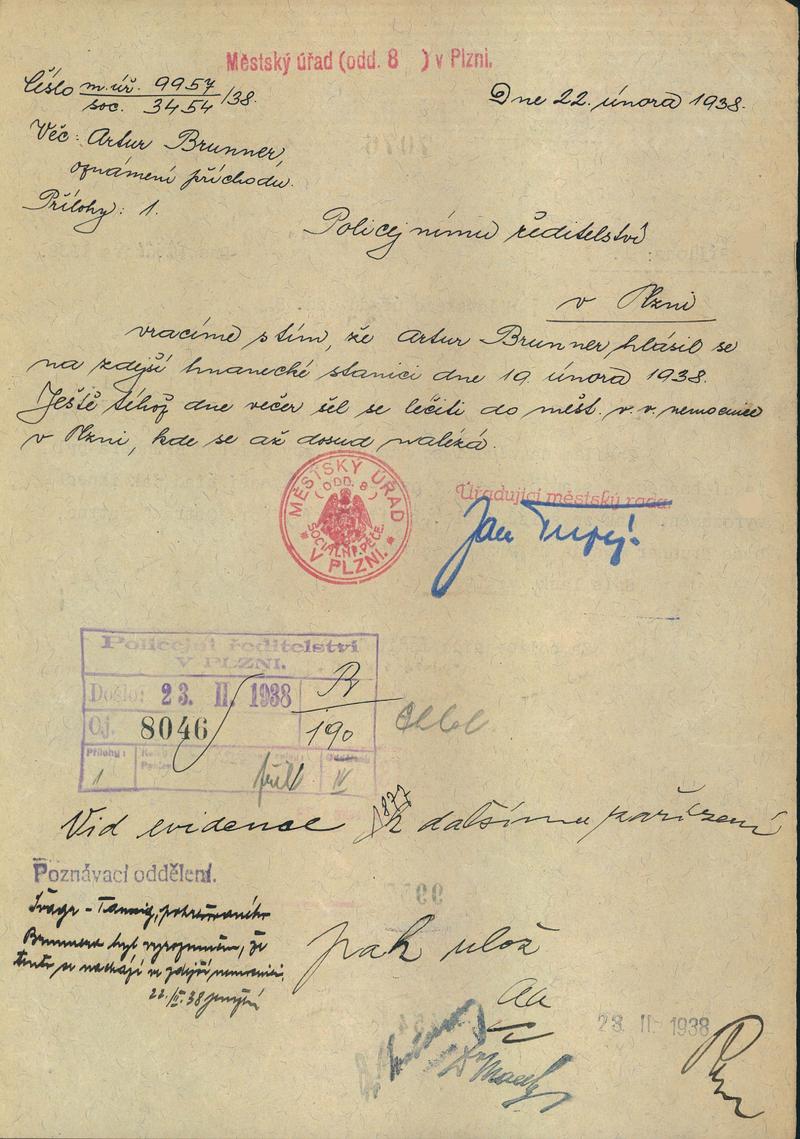 Městský úřad (odd. 8 ) v Plzni.
Číslo m. úř. 9957 /38.
soc. 3454
Dne 22. února 1938.
Věc: Artur Brunner,
oznámení příchodu.
Přílohy: 1.
Policejnímu ředitelství
v Plzni
vracíme s tím, že Artur Brunner hlásil se
na zdejší hnanecké stanici dne 19. února 1938.
Ještě téhož dne večer šel se léčiti do měst. v. v. nemocnice
v Plzni, kde se až dosud nalézá.
MĚSTSKÝ ÚŘAD
(ODD. 8)
SOCIÁLNÍ PÉČE
V PLZNI.
Úřadující městský rada:
Jan
Policejní ředitelství
V PLZNI.
Došlo: 23. II. 1938
Čj. 8046
190
Přílohy:
1
IV
Vid evidence k dalšímu pařízení
Poznávací oddělení.
Brunnera byl vyrozuměn, že
tento se nachází ve zdejší nemocnici.
22./II. 38
pak ulož
23 II. 1938